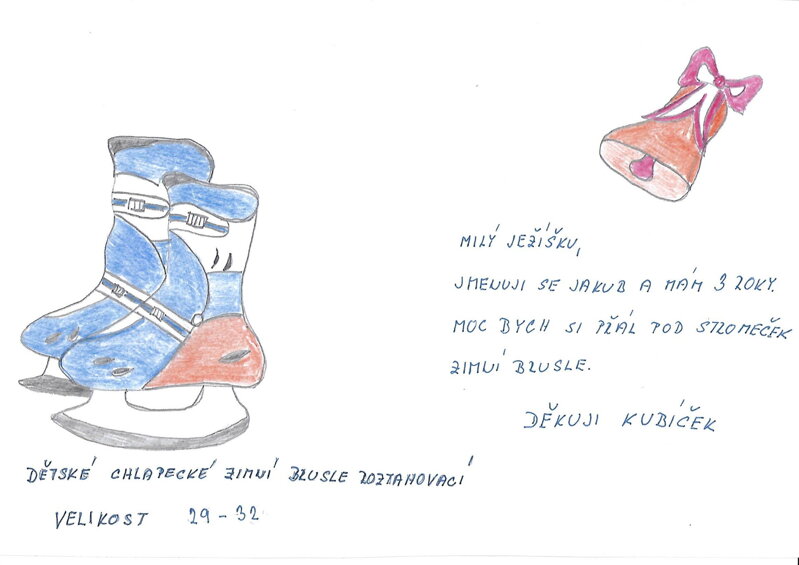 MILÝ JEŽÍŠKU,
JMENUJI SE JAKUB A MÁM 3 ROKY.
MOC BYCH SI PŘÁL POD STROMEČEK
ZIMNÍ BRUSLE.
DĚKUJI KUBÍČEK
DĚTSKÉ CHLAPECKÉ ZIMNÍ BRUSLE ROZTAHOVACÍ
VELIKOST 29-32